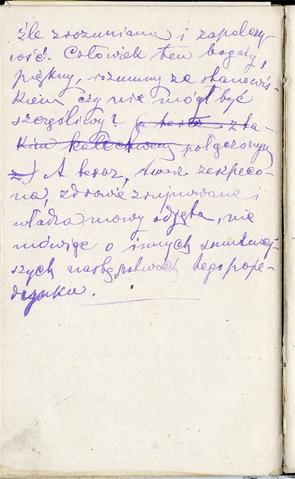 źle zrozumiana i zapalczy-
wość. Człowiek ten bogaty,
piękny, rozumny ze stanowis-
kiem czy nie mógł być
szczęśliwy? (a teraz z ta-
kim kalectwem półgorzonym
z) A teraz, twarz zeszpeco-
na, zdrowie zrujnowane i
władza mowy odjęta, nie
mówiąc o innych smutniej-
szych następstwach tego poje-
dynku.